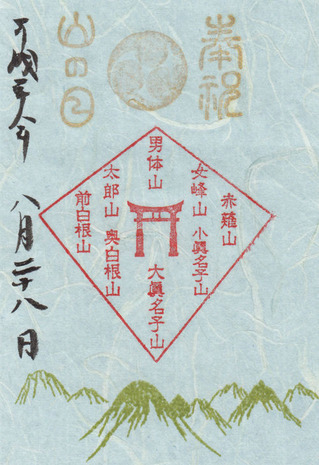 奉祝
山の日
赤薙山
女峰山
小眞名子山
男体山
大眞名子山
太郎山
奥白根山
前白根山
平成三十年
八月二十八日